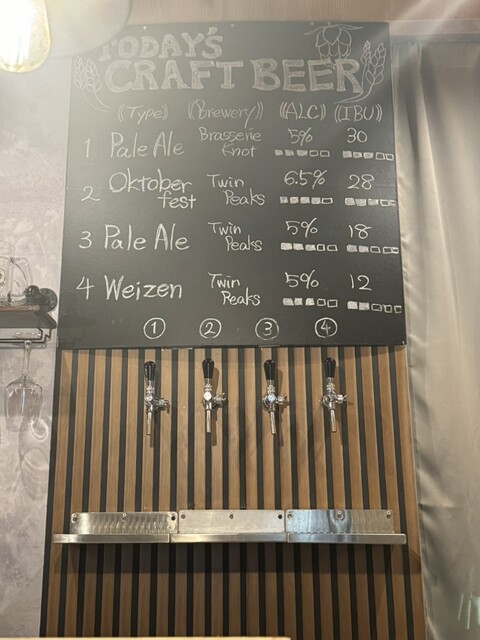 TODAY'S
CRAFT BEER
((Type)) ((Brewery)) ((ALC)) ((IBU))
1 Pale Ale Brasserie Knot 5% 30
2 Oktober fest Twin Peaks 6.5% 28
3 Pale Ale Twin Peaks 5% 18
4 Weizen Twin Peaks 5% 12
① ② ③ ④